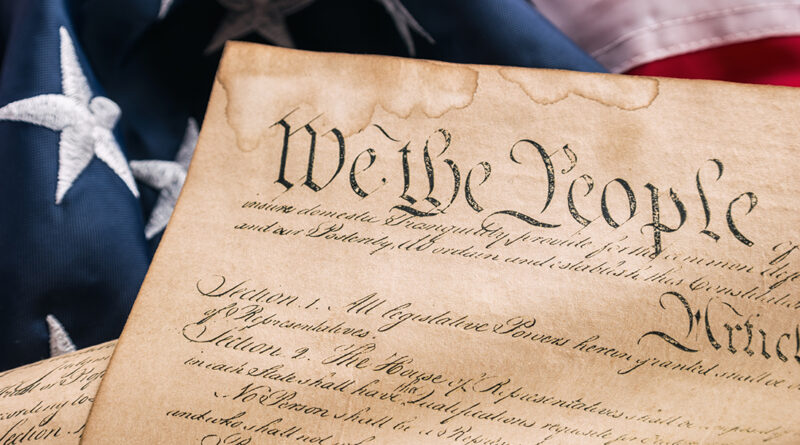 We the People of
insure domestic Tranquility, provide for the common
and our Posterity, do ordain and establish this Constitution
Article
Section. 1. All legislative Powers herein granted shall be
of Representatives.
Section. 2. The House of Representatives shall be composed
in each State shall have the Qualifications requisite for
No Person shall be a
and who shall not
Section